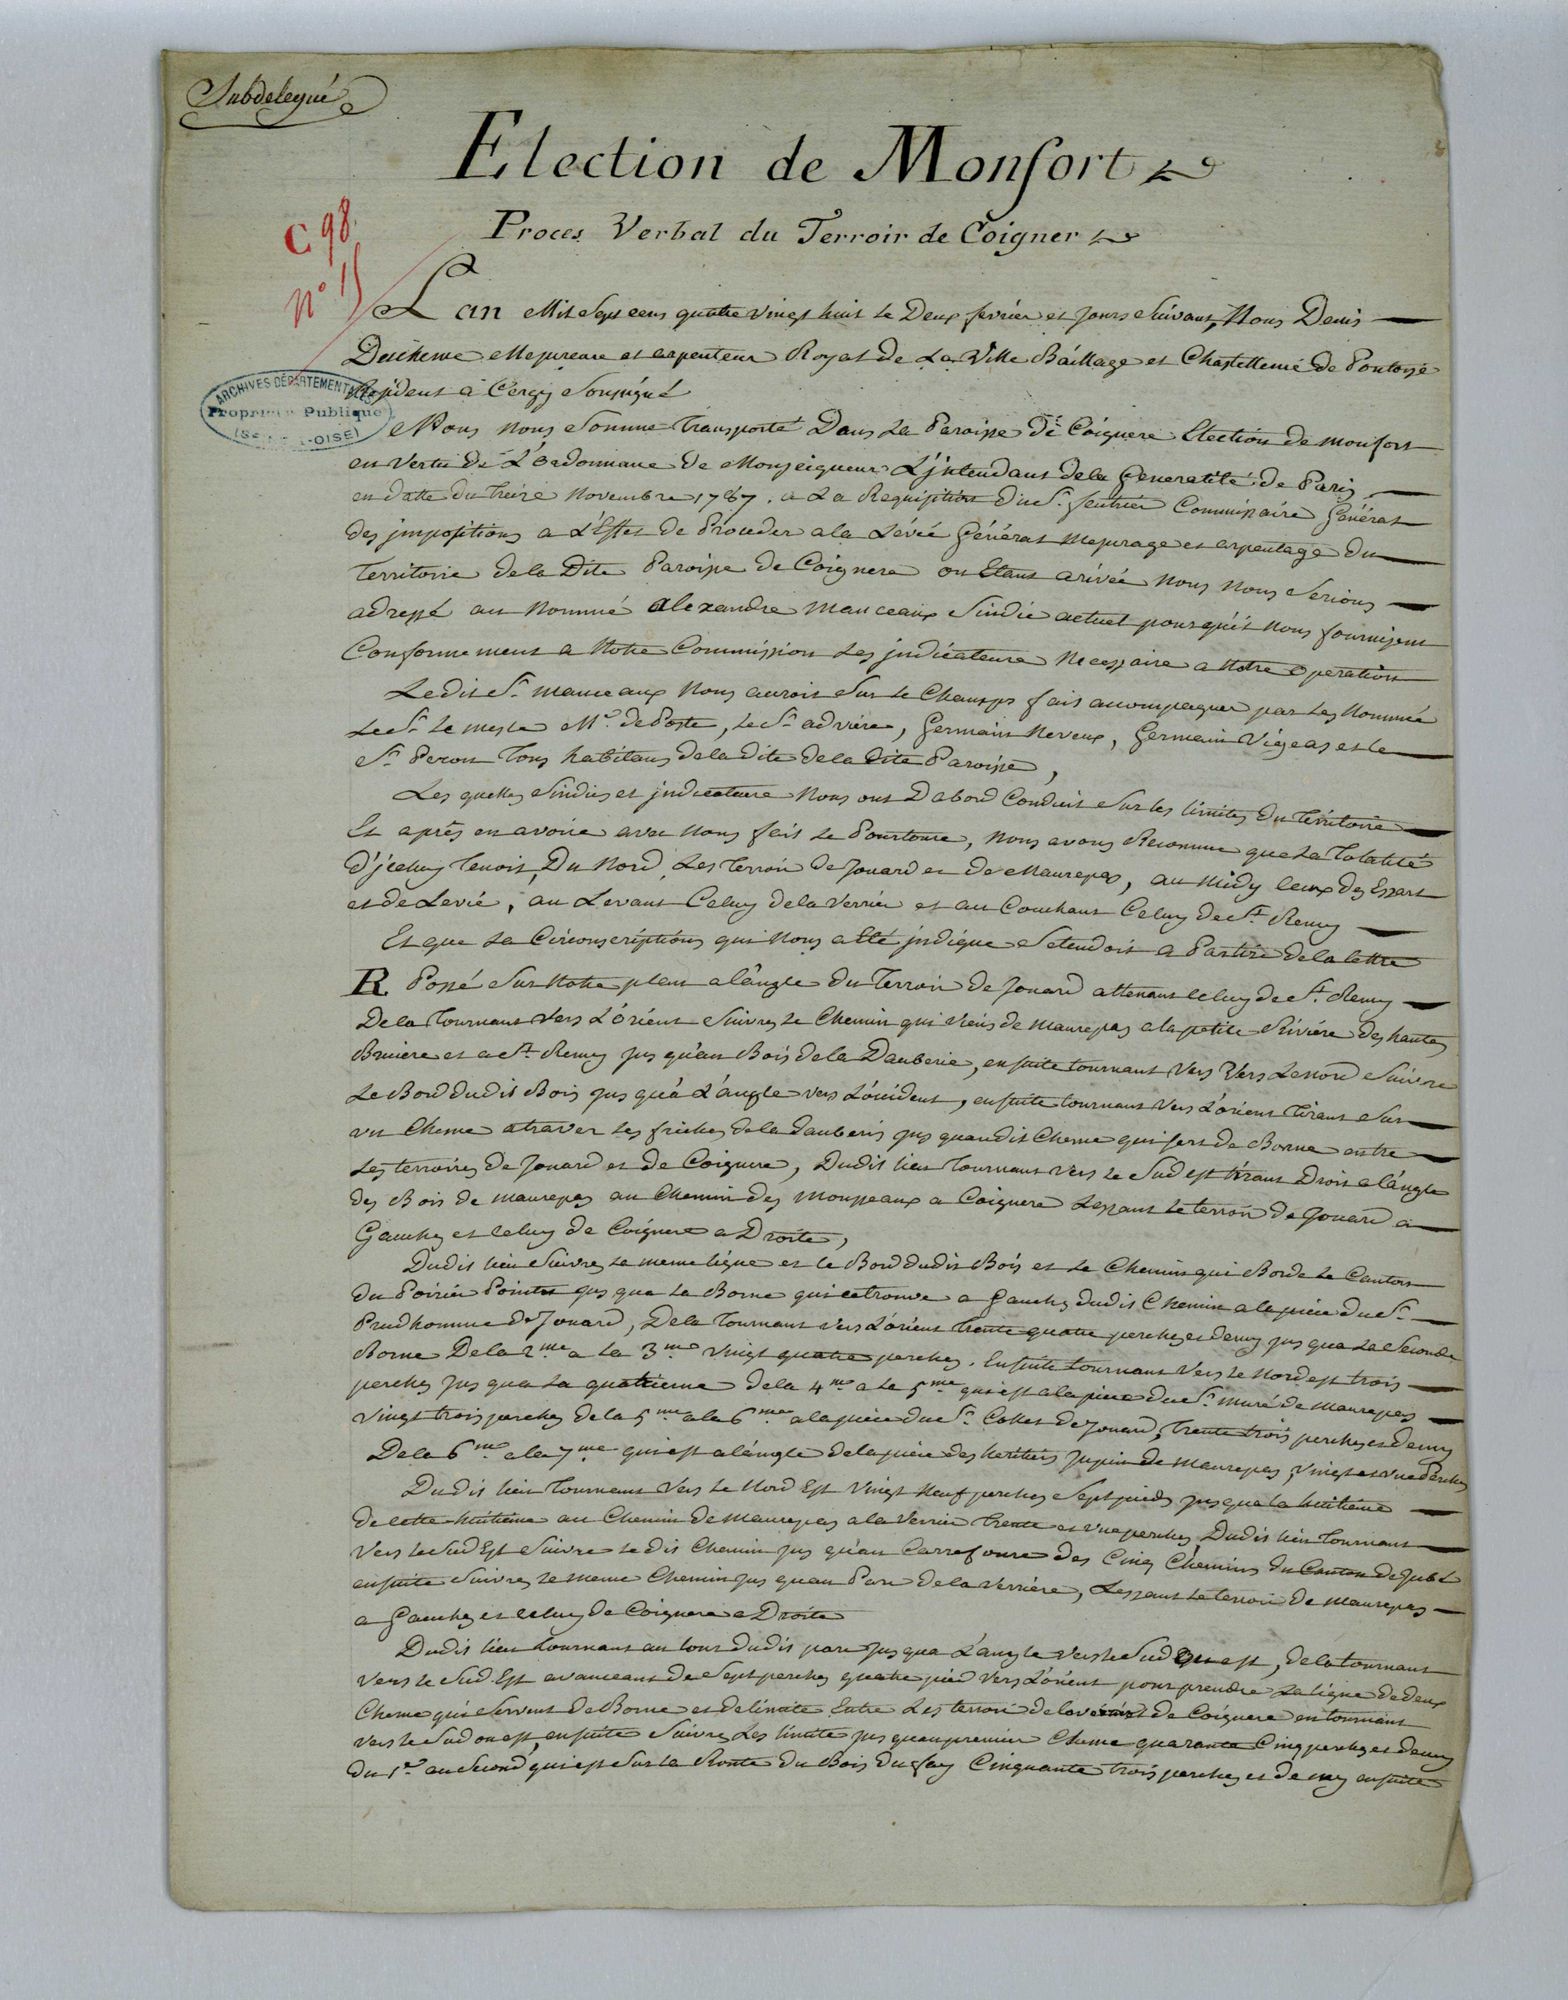 Subdelegué
Election de Monfort
C 98.
n° 15
Proces Verbal du Terroir de Coigner
Lan Mil Sept cens quatre vingt huit le Deux fevrier et jours Suivant, Nous Denis
Duchesne Mesureure et arpenteur Royal de La Ville Baillage et Chastellenié de Pontoise
Resident a Cergy Soussigné
ARCHIVES DÉPARTEMENTALES
Propriété Publique
(SEINE-&-OISE)
Nous nous Somme Transporté Dans La Paroisse De Coignere Election de monfort
en vertu de L'Ordonnance de Monseigneur L'jntendant de la Generalité de Paris
en datte du treize Novembre 1787. a La Requisition du Sr. feutrier Commissaire Général
des jmpositions a L'Effet de Proceder a la Levée Général Mesurage et arpentage du
Territoire de la Dite Paroisse de Coignere ou Etant arivée nous nous Serions
adressé au Nommé alexandre Manceaux Sindic actuel pour qu'il nous fournissent
Conformement a Notre Commission Les jndicateure Necessaire a Notre Operation
Ledit Sr. manceaux Nous auroit Sur le Champs fait accompagner par Les Nommé
Le Sr. Le mesle Me. de Poste, Le Sr. adviere, Germain Neveux, Germain Vigeas et le
Sr. Peron Tous habitans de la dite de la dite Paroisse,
Les quelles Sindics et jndicateure Nous ont D'abord Conduit Sur les limites Du Territoire
Et après en avoire avec Nous fait le Pourtoure, nous avons Reconnue que La Totalité
D'jceluy Tenoit Du Nord Les Terroir de Jouard et de Maurepas, au Midy ceux des Essart
et de Levié, au Levant Celuy de la Verrier et au Couchant Celuy de St. Remy
Et que La Circonscription qui Nous a Eté jndiqué Setendoit a Partire de la lettre
R Possé Sur Notre plan a l'angle du Terroir de Jouard attenant Celuy de St. Remy
De la Tournant Vers L'Orient Suivre Le Chemin qui Vient de Maurepas a la petite Riviére des hautes
Bruiere et a St. Remy jus qu'au Bois de la Dauberie, ensuite tournant Vers Vers Le Nord Suivre
Le Bord dudit Bois jus qu'à L'angle vers L'occident, ensuite tournant Vers L'orient Tirant Sur
un Chene a traver Les friches de la dauberis jus quaudit Chene qui sert de Borne entre
Les terroires de Jouard et de Coignere, Dudit lieu Tournant vers Le Sud est tirant Droit a l'angle
des Bois de maurepas au Chemin des Mousseaux a Coignere Lessant le terroir de Jouard a
Gauche et Celuy de Coignere a Droite,
Dudit lieu Suivre La meme ligne et le Bord dudit Bois et Le Chemin qui Borde Le Canton
du Poirier Pointu jus qua La Borne qui ce trouve a Gauche dudit Chemin a la piece du Sr.
Prudhomme de Jouard, De la Tournant vers L'orient trente quatre perches et demy jus qua La Seconde
Borne De la 2me a la 3me vingt quatre perches. Ensuite tournant Vers Le Nord est trois
perches jus qua La quatrieme de la 4me a La 5me qui est a la piece du Sr. muré de Maurepas
Vingt trois perches de la 5me a la 6me a la piece du Sr. Collet de Jouard, Trente trois perches et demy
De la 6me a la 7me qui est a l'angle de la piece des heritiers Jupin de Maurepas, Vingt et une Perches
Dudit lieu Tournant Vers Le Nord Est Vingt Neuf perches Sept pieds jus qua la huitiéme
de Cette huitieme au Chemin de Maurepas a la Verrier Trente et une perches Dudit lieu Tournant
Vers Le Sud Est Suivre Le dit Chemin jus qu'au Carrefoure des Cinq Chemins du Canton de Jublé
ensuite Suivre Le meme Chemin jus quau Parc de la Verriére, Lessant Le terroir de Maurepas
a Gauche et Celuy de Coignere a Droite
Dudit lieu tournant au tour dudit parc jus qua L'angle Vers Le Sud Ouest, de la tournant
Vers Le Sud Est avanceant de Sept perches quatre pied Vers L'orient pour prendre La ligne de deux
Chene qui Servent de Borne et de limite Entre Les terroir de la verriér et de Coignere en tournant
Vers Le Sud ouest, ensuite Suivre Les limite jus quau premier Chene quarante Cinq perches et demy
Du 1er au Second qui est Sur La Route du Bois du fay Cinquante trois perches et demy ensuite